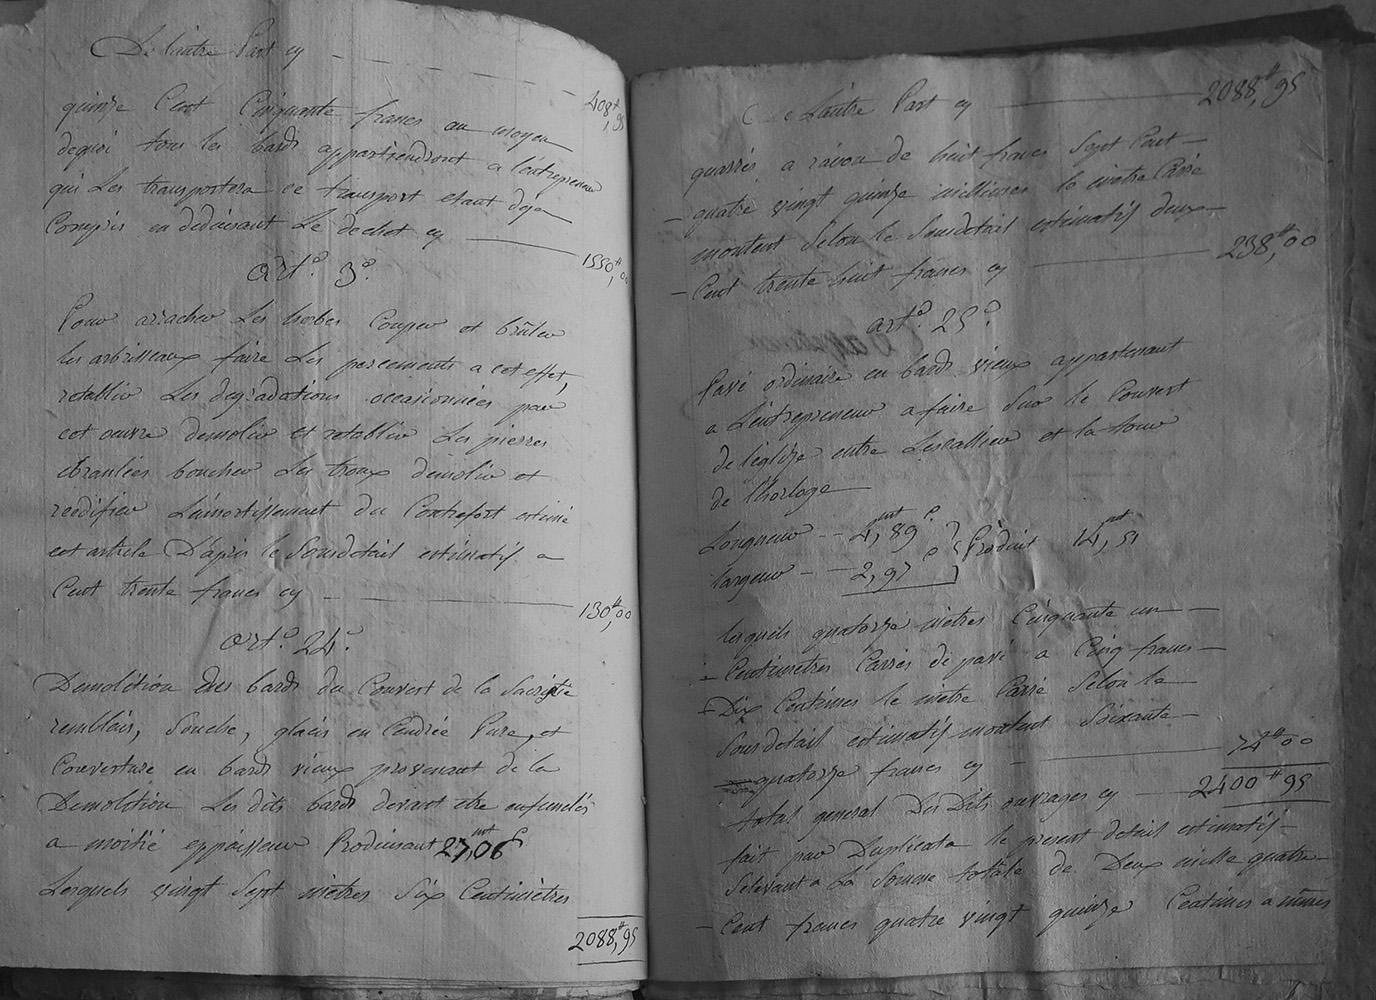 De Lautre Part cy — 408,tt 95
quinze Cent Cinquante francs au moyen
dequoi tous les bards appartiendront a l'entrepreneur
qui Les transportera ce transport etant deja
Compris en deduisant Le dechet cy — 1550,tt 00
art.º 3º.
Pour arracher Les herbes Couper et brûler
les arbrisseaux faire Les percements a cet effet,
retablir Les degradations occasionnées par
cet oeuvre demolir et retablir Les pierres
ebranlées boucher Les troux demolir et
reedifier L'amortissement du Contrefort estimé
cet article D'apres le Sousdetail estimatif a
Cent trente francs cy — 130,tt 00
art.º 24.º
Demolition des bards du Couvert de la Sacristie
remblais, Souche, glacis en Cendrée Pure, et
Couverture en bards vieux provenant de la
Demolition Les dits bards devant etre
a moitié eppaisseur Produisant 27,mt 06
Lesquels vingt Sept mètres Six Centimètres
2088,tt 95
De Lautre Part cy — 2088,tt 95
quarrés a raison de huit francs Sept Cent —
— quatre vingt quinze millièmes le mètre Carré
montent Selon le Sousdetail estimatif deux —
— Cent trente huit francs cy — 238,tt 00
art.º 25.º
Pavé ordinaire en bards vieux appartenant
a L'entrepreneur a faire Sur le Couvert
de l'église entre Lescallier et la tour
de l'horloge
Longueur — 4,mt 89 c } Produit 14,mt 51
Largeur — 2,97 c
lesquels quatorze mètres Cinquante un —
— Centimètres Carrés de pavé a Cinq francs —
— Dix Centimes le mètre Carré Selon le
Sousdetail estimatif montent Soixante —
quatorze francs cy — 74tt 00
total general Des Dits ouvrages cy — 2400tt 95
fait par Duplicata le present detail estimatif —
Sélevant a La Somme totale de Deux mille quatre —
— Cent francs quatre vingt quinze Centimes a nimes